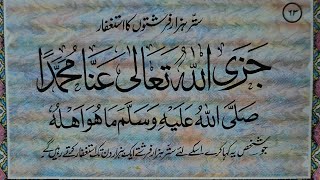 ۶۳
ستر ہزار فرشتوں کا استغفار
جَزَى اللهُ تَعَالَى عَنَّا مُحَمَّدًا
صَلَّى اللهُ عَلَيْهِ وَسَلَّمَ مَا هُوَ اَهْلُهُ
جو شخص یہ کہا کرے اسکے لئے ستر ہزار فرشتے ایک ہزار دن تک استغفار کرتے رہیں گے